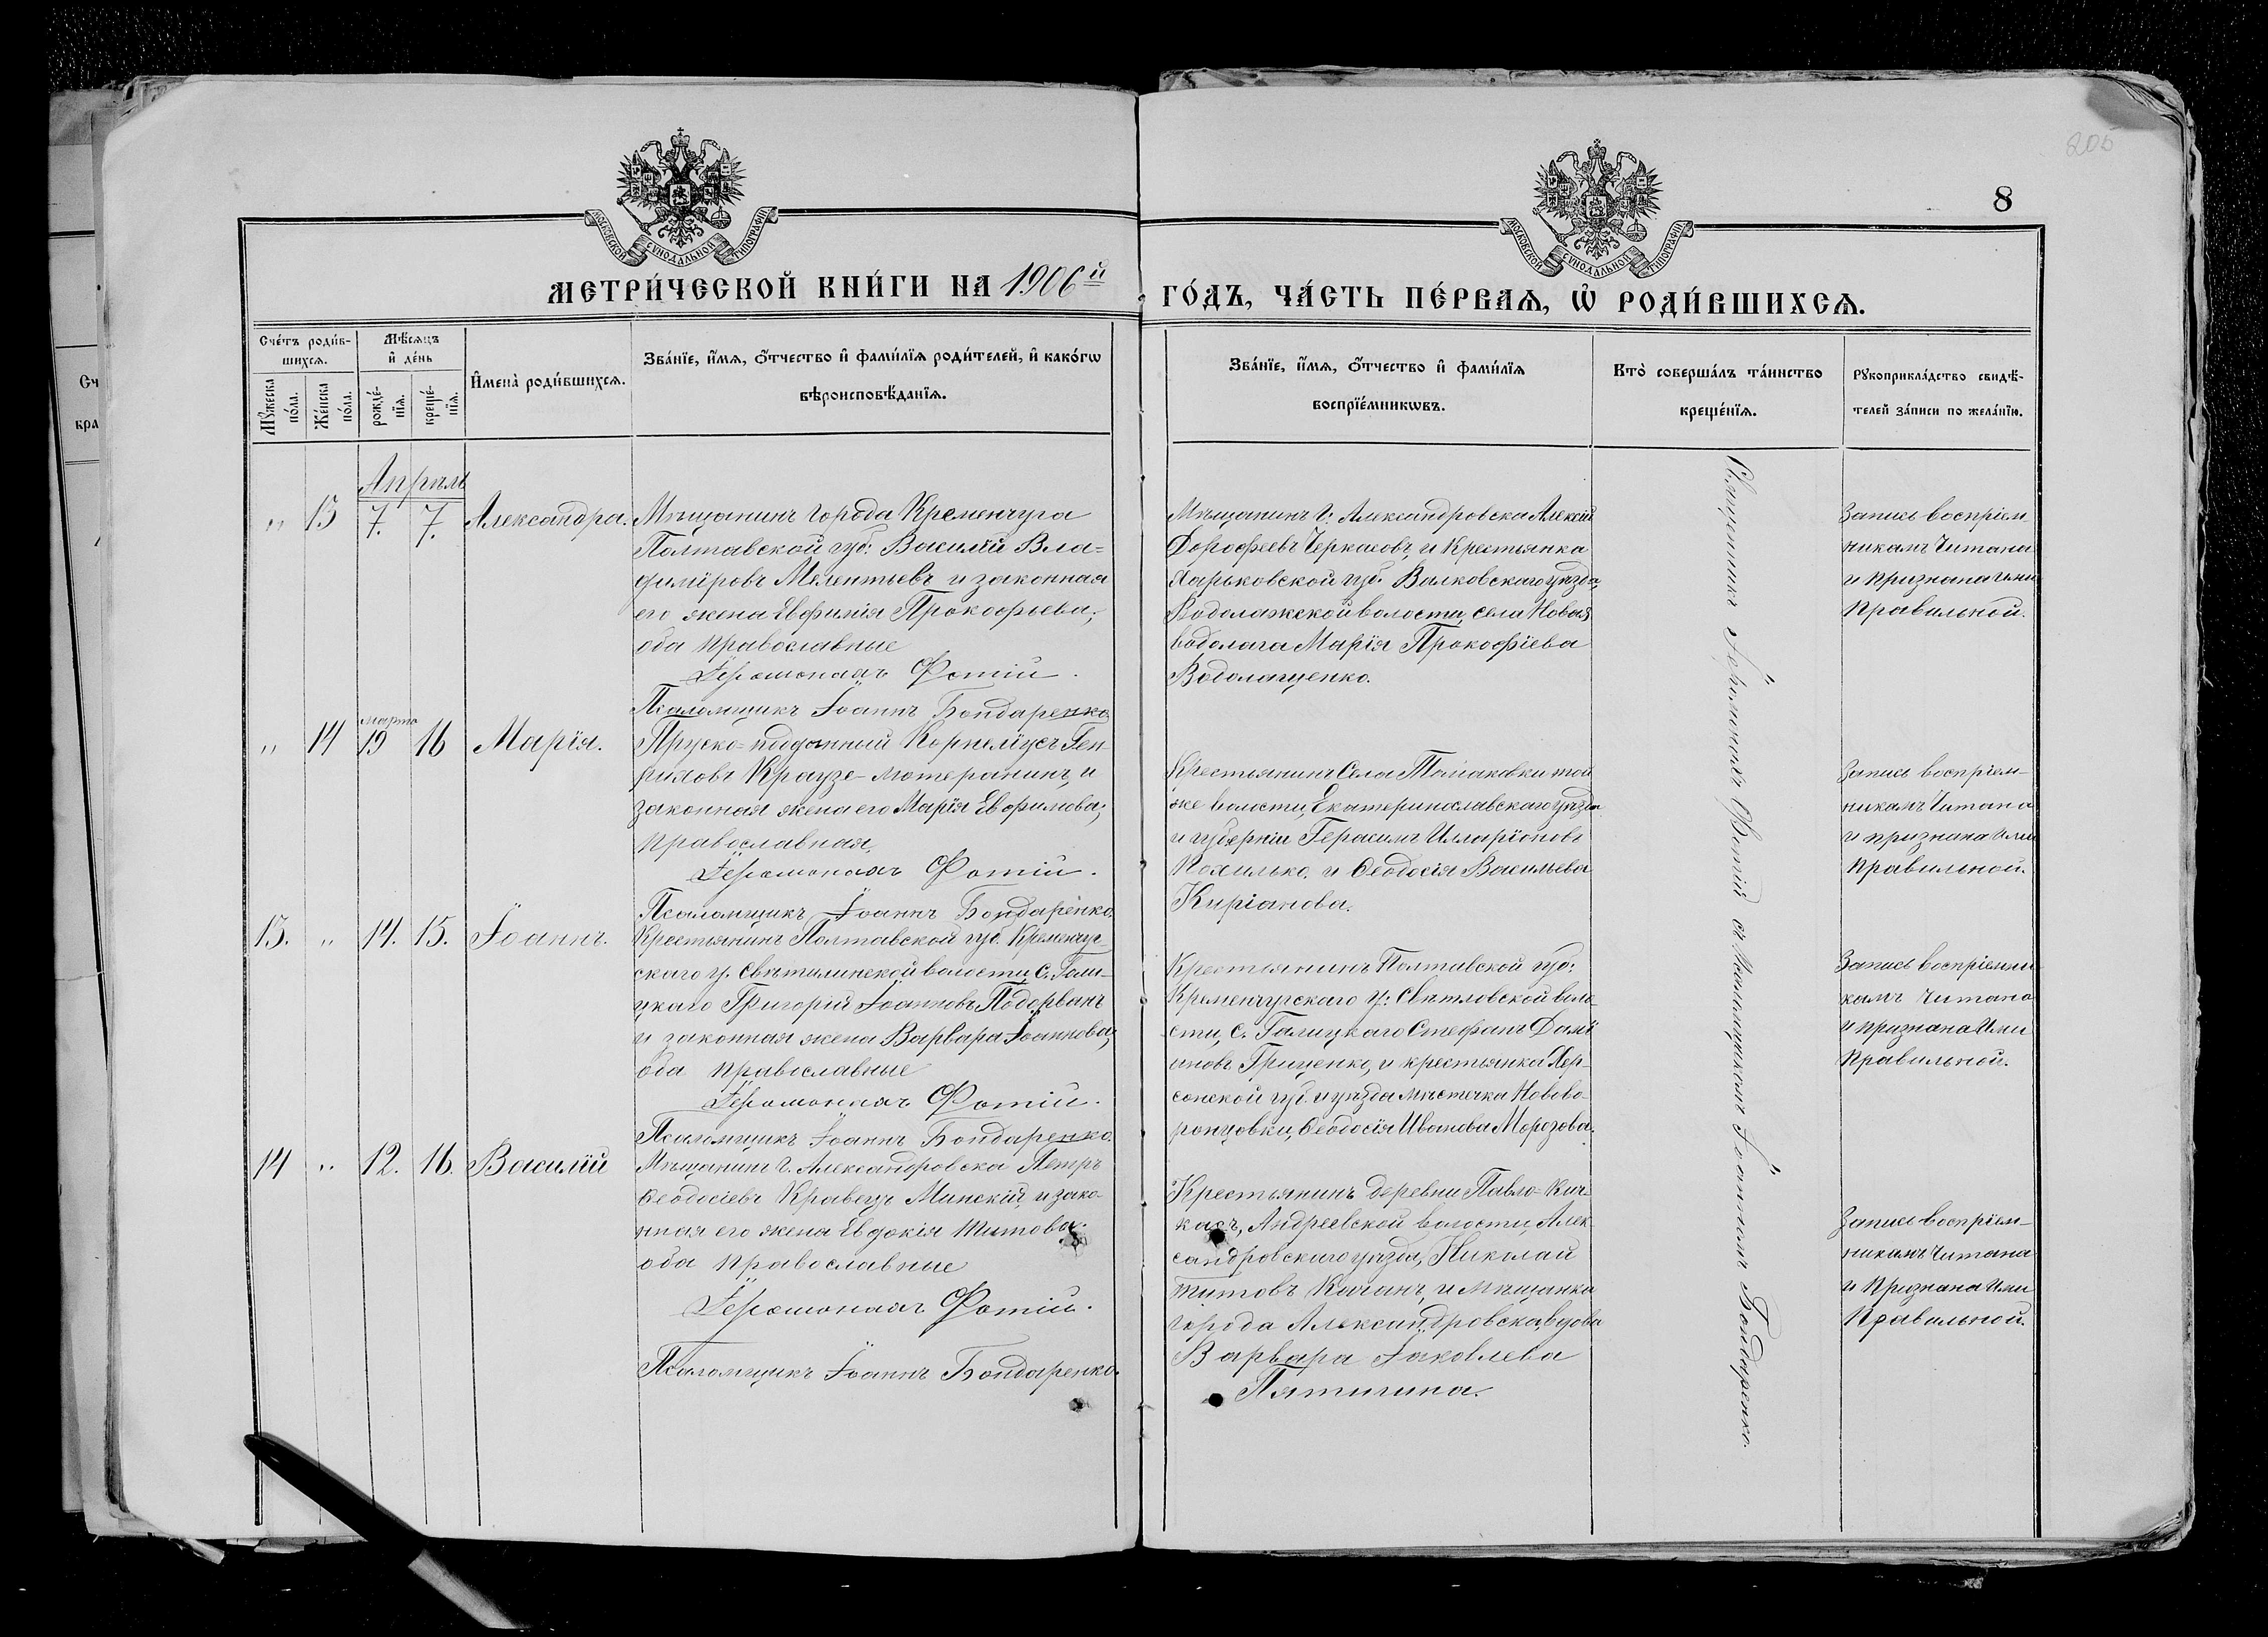 205
8
МОСКОВСКОЙ СУНОДАЛЬНОЙ ТИПОГРАФІИ
МОСКОВСКОЙ СУНОДАЛЬНОЙ ТИПОГРАФІИ
МЕТРИ́ЧЕСКОЙ КНИ́ГИ НА 1906й
ГО́ДЪ, ЧА́СТЬ ПЕ́РВАѦ, Ѡ҆ РОДИ́ВШИХСѦ.
Сче́тъ роди́в-
шихсѧ.
Мꙋжеска по́ла.
Же́нска по́ла.
Мѣ́сѧцъ
и҆ де́нь
рожде́-
нїѧ.
креще́-
нїѧ.
И҆мена̀ роди́вшихсѧ.
Зва́нїе, и҆́мѧ, ѻ҆́тчество и҆ фами́лїѧ роди́телей, и҆ како́гѡ
вѣроисповѣ́данїѧ.
Зва́нїе, и҆́мѧ, ѻ҆́тчество и҆ фами́лїѧ
воспрїе́мникѡвъ.
Кто̀ соверша́лъ та́инство
креще́нїѧ.
Рꙋкоприкла́дство свидѣ́-
телей за́писи по жела́нїю.
Апрель
„ 13 7. 7. Александра.
Мѣщанинъ города Кременчуга
Полтавской губ: Василій Вла=
диміровъ Мелентьевъ и законная
его жена Евфимія Прокофьева,
оба православные
Іеромонахъ Фотій.
Псаломщикъ Іоаннъ Бондаренко
Мѣщанинъ г: Александровска Алексій
Дорофеевъ Черкасовъ, и Крестьянка
Харьковской губ. Валковскаго уѣзда,
Водолажской волости, села Новая
водолага Марія Прокофіева
Водолащенко.
Запись воспріем
никамъ Читана
и признана ими
правильной.
марта
„ 14 19 16 Марія.
Пруско=подданный Корнеліусъ Ген
риховъ Краузе-лютеранинъ, и
законная жена его Марія Евфимова,
православная,
Іеромонахъ Фотій.
Псаломщикъ Іоаннъ Бондаренко.
Крестьянинъ Села Томаковки той
же волости, Екатеринославскаго уѣзда
и губерніи Герасимъ Илларіоновъ
Похилько. и Ѳеодосія Васильева
Киріанова.
Запись воспріем-
никамъ Читана
и признана ими
правильной.
13. „ 14. 15. Іоаннъ.
Крестьянинъ Полтавской губ. Кременчуг-
скаго у. Свѣтилинской волости, с. Гали-
цкаго Григорій Іоанновъ Подорванъ
и законная жена Варвара Іоаннова,
оба православные
Іеромонахъ Фотій.
Псаломщикъ Іоаннъ Бондаренко.
Крестьянинъ Полтавской губ:
Кременчугскаго у: Свѣтловской воло-
сти, с. Галицкаго Стефанъ Дамі
ановъ Гриценко, и крестьянка Хер-
сонской губ. и уѣзда мѣстечка Нововo-
ронцовки, Ѳеодосія Иванова Морозова.
Запись воспріемни
камъ Читана
и признана Ими
правильной.
14 „ 12. 16. Василій
Мѣщанинъ г. Александровска Петръ
Ѳеодосіевъ Кравецъ Минскій, и зако-
нная его жена Евдокія Титова.
оба православные
Іеромонахъ Фотій.
Псаломщикъ Іоаннъ Бондаренко.
Крестьянинъ деревни Павло-Кич-
касъ, Андреевской волости, Алек
сандровскаго уѣзда, Николай
Титовъ Каганъ, и Мѣщанка
города Александровска, вдова
Варвара Іаковлева
Пятигина.
Запись воспріем-
никамъ Читана
и Признана Ими
Правильной.
Священникъ Іеромонахъ Фотій съ Псаломщикомъ Іоанномъ Бондаренко.